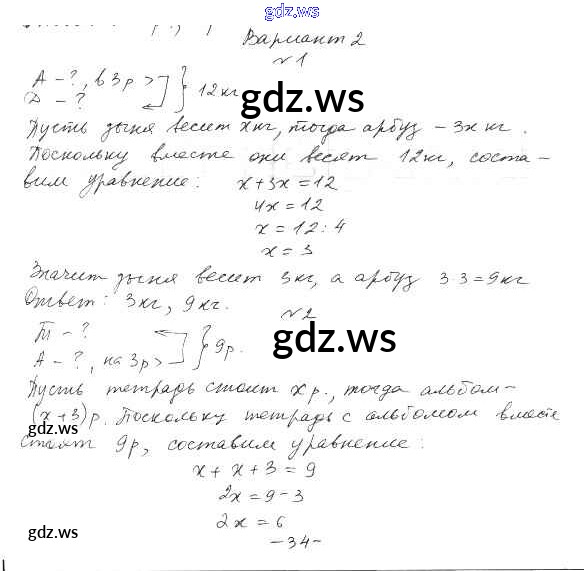 gdz.ws
Вариант 2
№1
А - ?, в 3 р > } 12 кг
Д - ?
gdz.ws
Пусть дыня весит x кг, тогда арбуз - 3x кг.
Поскольку вместе они весят 12 кг, соста-
вим уравнение: x + 3x = 12
4x = 12
x = 12 : 4
x = 3
Значит дыня весит 3 кг, а арбуз 3·3 = 9 кг
Ответ: 3 кг, 9 кг.
№2
Т - ?
А - ?, на 3 р > } 9 р.
gdz.ws
Пусть тетрадь стоит x р., тогда альбом -
(x + 3) р. Поскольку тетрадь с альбомом вместе
gdz.ws
стоят 9 р, составим уравнение:
x + x + 3 = 9
2x = 9 - 3
2x = 6
gdz.ws
-34-
gdz.ws